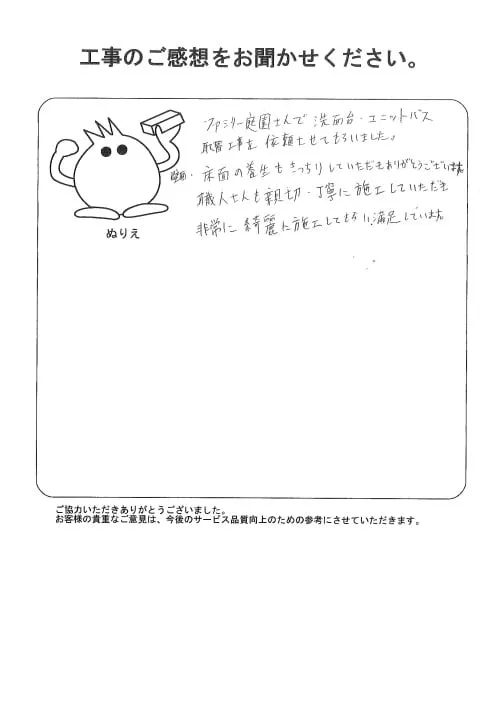 工事のご感想をお聞かせください。
ファミリー庭園さんで 洗面台・ユニットバス
取替工事を 依頼させてもらいました。
壁面・床面の養生もきっちりしていただきありがとうございます。
職人さんも親切・丁寧に施工していただき
非常に綺麗に施工してもらい満足しています。
ぬりえ
ご協力いただきありがとうございました。
お客様の貴重なご意見は、今後のサービス品質向上のための参考にさせていただきます。